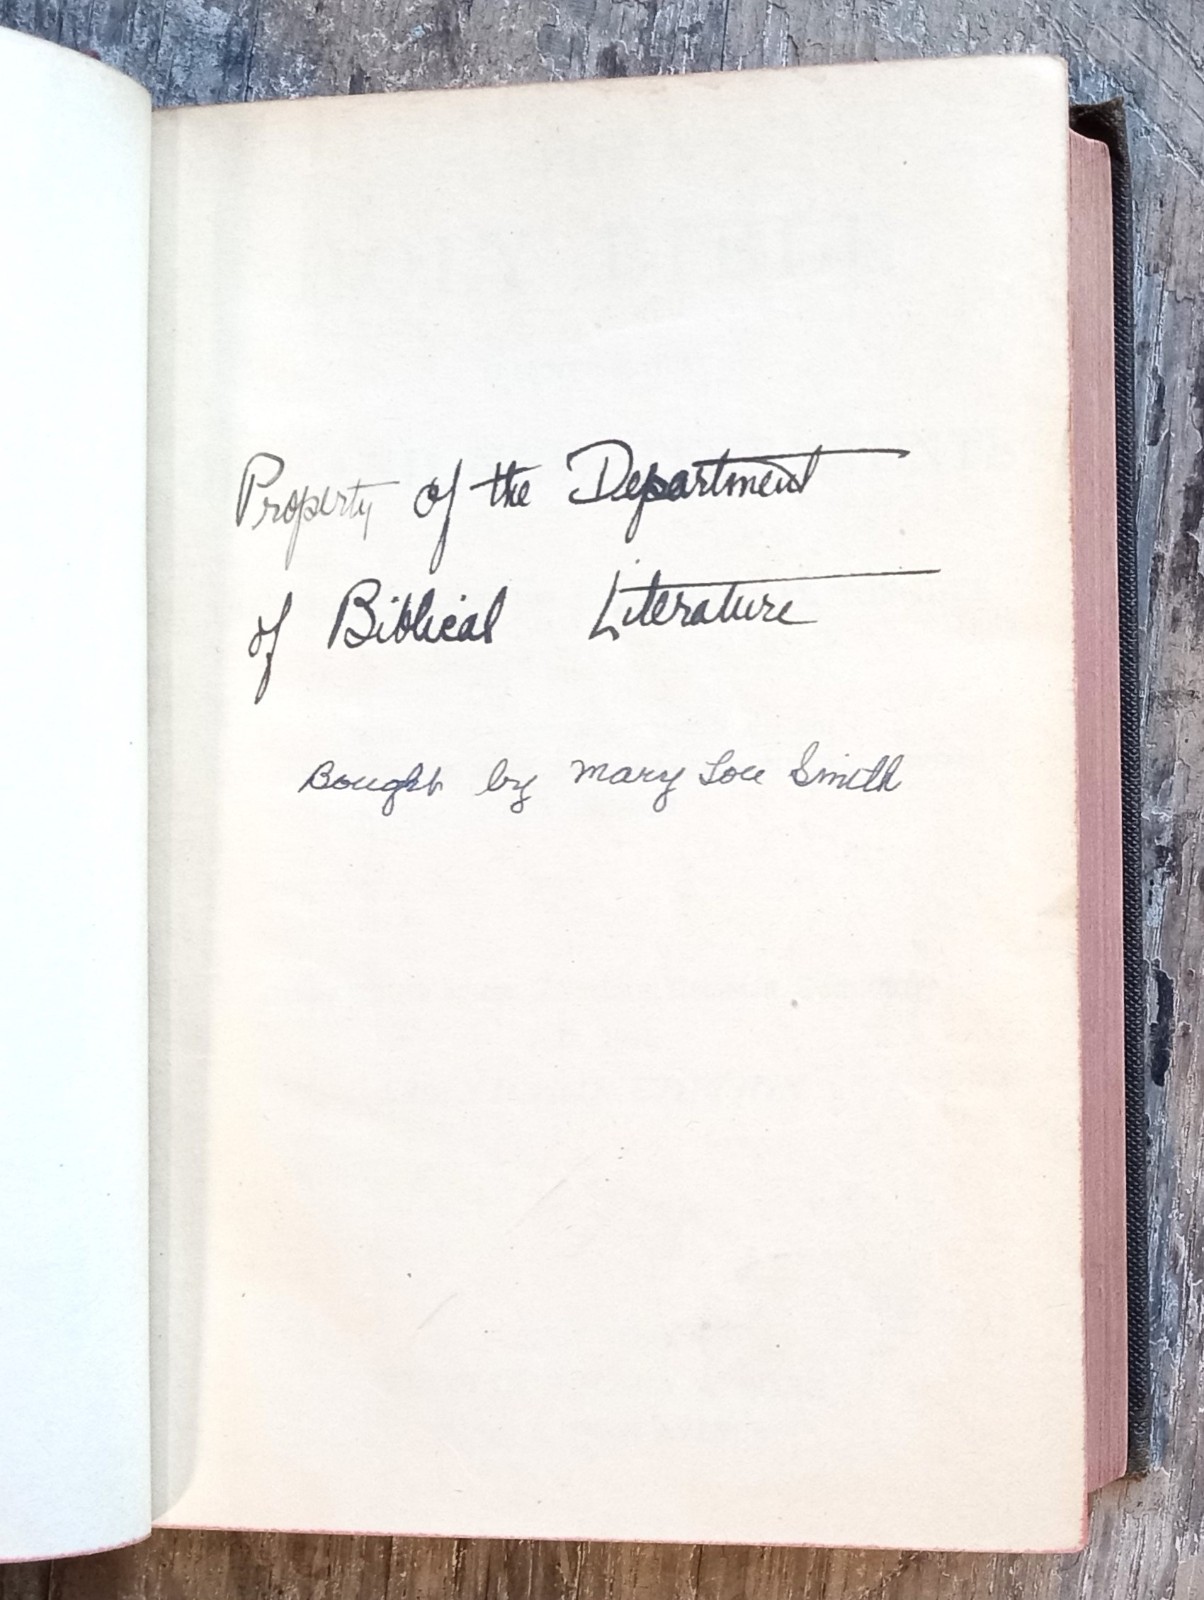 Property of the Department
of Biblical Literature
Bought by Mary Lou Smith